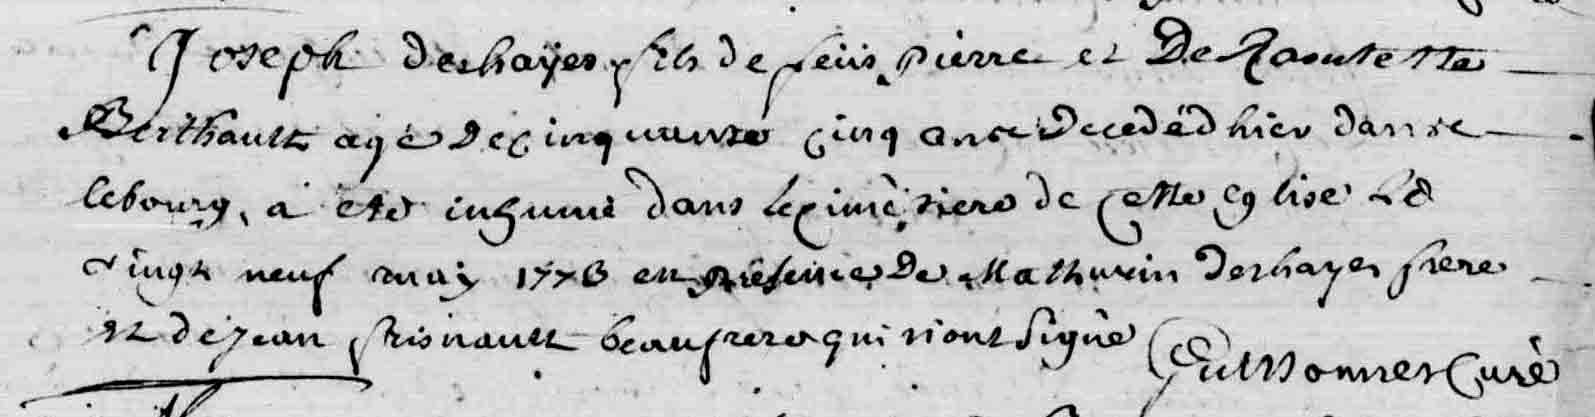 Joseph deshayes fils de feus pierre et De
Berthault agé de cinquante cinq ans decedé d hier dans ce
lebourg, a eté inhumé dans le cimetiere de cette eglise Le
vingt neuf may 1773 en présence De Mathurin deshayes frere
et de jean frisnault beaufrere qui n'ont signé curé